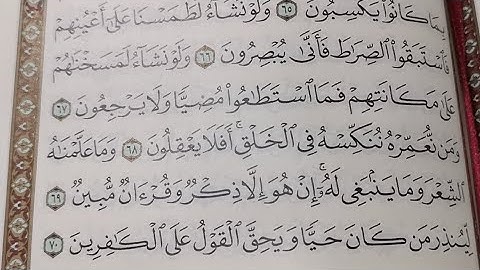 بِمَا كَانُوا۟ يَكْسِبُونَ ٦٥ وَلَوْ نَشَآءُ لَطَمَسْنَا عَلَىٰٓ أَعْيُنِهِمْ
فَٱسْتَبَقُوا۟ ٱلصِّرَٰطَ فَأَنَّىٰ يُبْصِرُونَ ٦٦ وَلَوْ نَشَآءُ لَمَسَخْنَٰهُمْ
عَلَىٰ مَكَانَتِهِمْ فَمَا ٱسْتَطَٰعُوا۟ مُضِيًّا وَلَا يَرْجِعُونَ ٦٧
وَمَن نُّعَمِّرْهُ نُنَكِّسْهُ فِى ٱلْخَلْقِ ۖ أَفَلَا يَعْقِلُونَ ٦٨ وَمَا عَلَّمْنَٰهُ
ٱلشِّعْرَ وَمَا يَنۢبَغِى لَهُۥٓ ۚ إِنْ هُوَ إِلَّا ذِكْرٌ وَقُرْءَانٌ مُّبِينٌ ٦٩
لِّيُنذِرَ مَن كَانَ حَيًّا وَيَحِقَّ ٱلْقَوْلُ عَلَى ٱلْكَٰفِرِينَ ٧٠